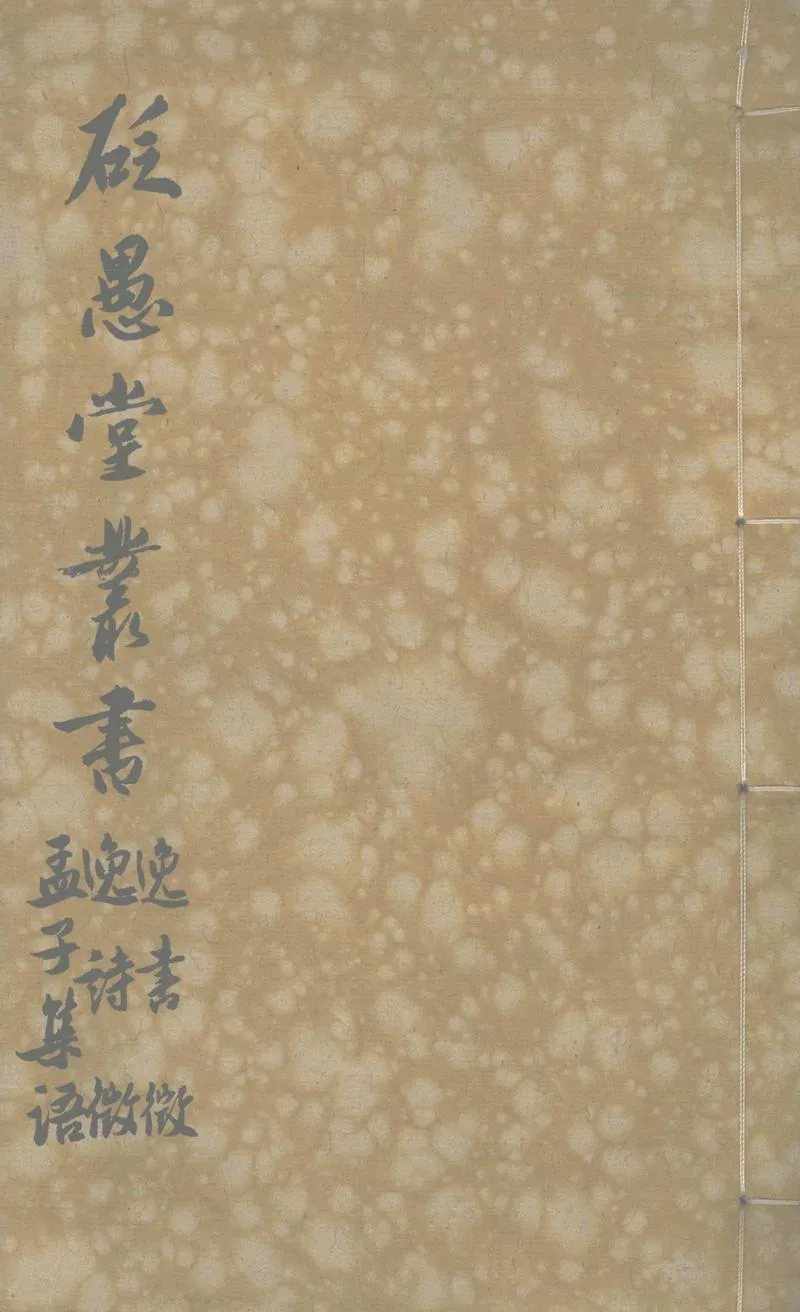 砭愚堂叢書
逸書微
逸詩微
孟子集語